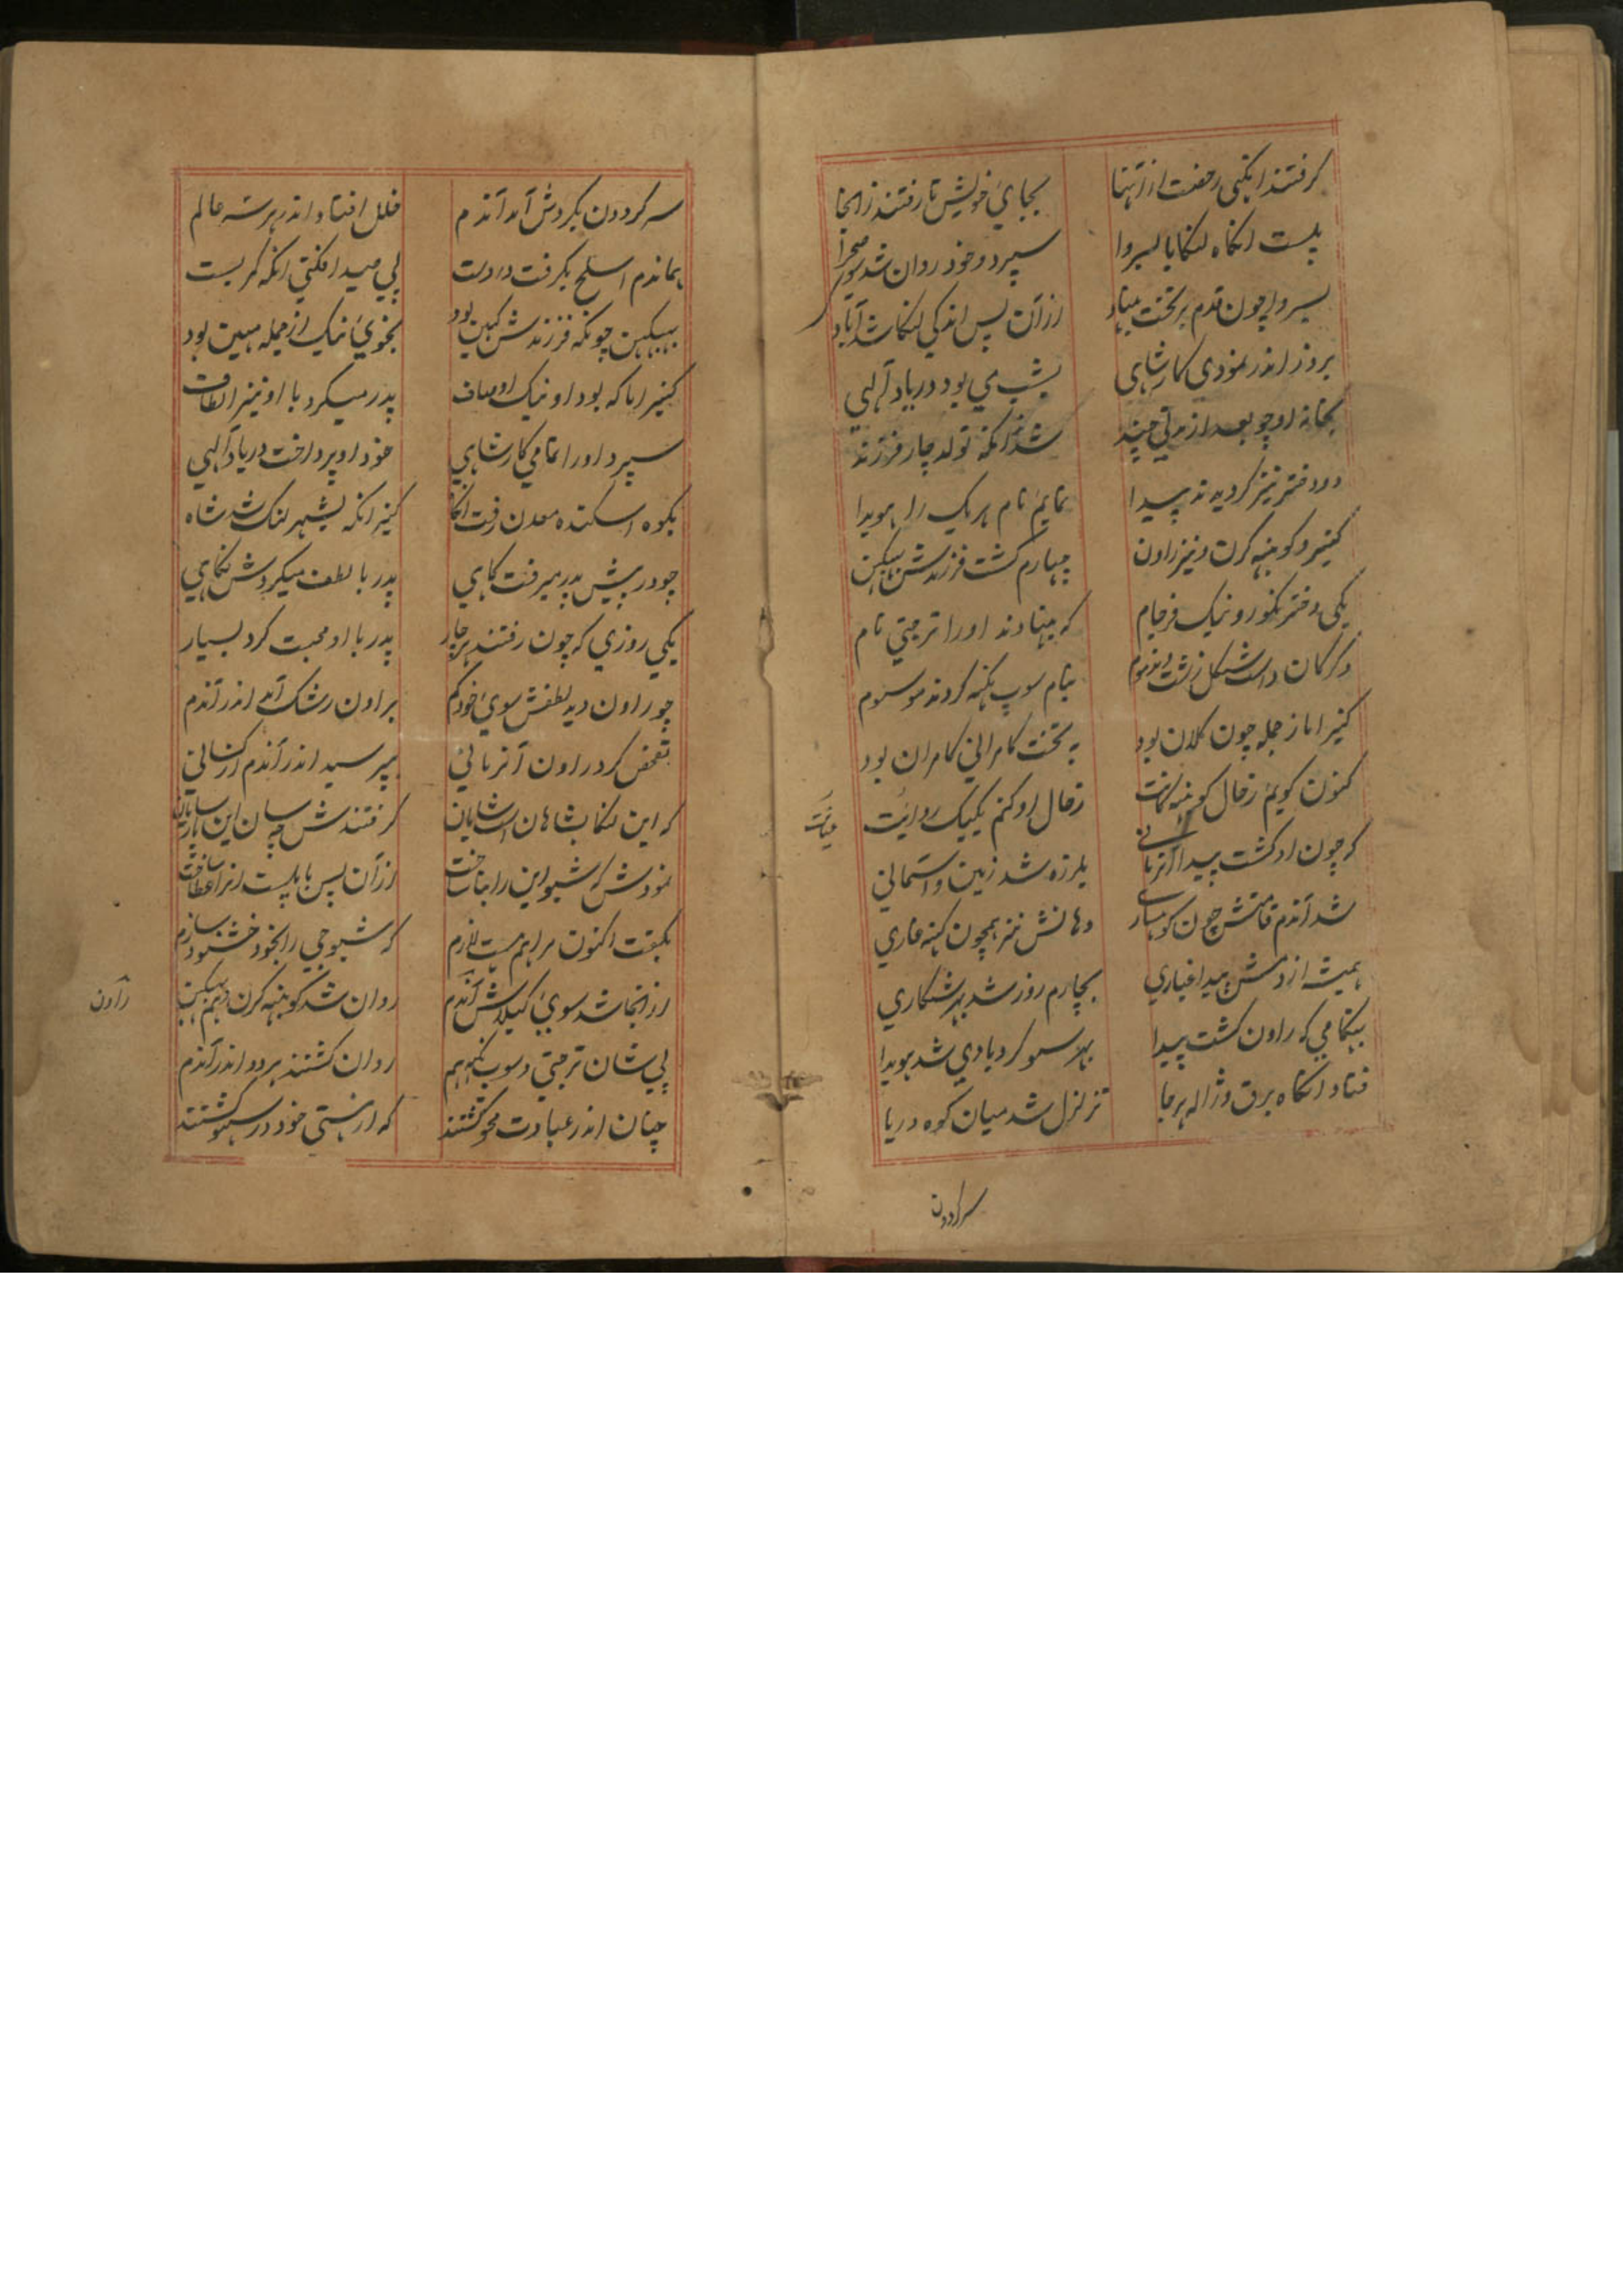 گرفتند انکهی رخصت از آنها بجای خویش تا رفتند زانجا
پلست انکاه لنکا با بسروا سپرد و خود روان شد سوی صحرا
بسروا چون قدم بر تخت بنهاد ازآن پس اندکی لنکا شد آباد
بروز اندر نمودی کار شاهی بشب می بود در یاد آلهی
بخانه او چو بعد از مدتی چند شد آنکه تولد چار فرزند
دو دختر نیز کردیدند پیدا نمایم نام هر یک را هویدا
کنیر و کوبنهه کرن و نیز راون چهارم کشت فرزندش بهبیکن
یکی دختر نکو رو نیک فرجام که بنهادند او را ترجتی نام
دکر کان داشت شکل زشت و مذموم بنام سوپ نکهه کردند موسوم
کنیر اما ز جمله چون کلان بود به تخت کامرانی کامران بود
کنون کویم ز حال کوبنهه کرنت ز حال او کنم یکیک روایت
که چون او کشت پیدا آنزمانی بلرزه شد زمین و آسمانی
شد آندم قامتش چون کوهساری دهانش نیز همچون کهنه غاری
همیشه از دمش پیدا غباری بچارم روز شد بهر شکاری
بهنکامی که راون کشت پیدا بهر سو کرد بادی شد هویدا
فتاد انکاه برق و ژاله هر جا تزلزل شد میان کوه و دریا
سر کردون
سر کردون بکردش آمد آندم خلل افتاد اندر هر سه عالم
هماندم اسلح بکرفت در دست پی صید افکنی انکه کمر بست
بهبیکن چونکه فرزندش کهین بود بخوی نیک از جمله مهین بود
کنیر اما که بود او نیک اوصاف پدر میکرد با او نیز الطاف
سپرد او را تمامی کار شاهی خود او پرداخت در یاد آلهی
بکوه اسکنده معدن رفت آنکاه کنیر انکه بشهر لنک شد شاه
چو در پیش پدر میرفت کاهی پدر با لطف میکردش نکاهی
یکی روزی که چون رفتند هر چار پدر با او محبت کرد بسیار
چو راون دید لطفش سوی خود کم بر اون رشک آمد اندر آندم
تفحص کرد راون آنزمانی بپرسید اندر آندم از کسانی
که این لنکا بشاهان است شایان گرفتندش چه سان این
نمودش که شیو این را بنا ساخت ازآن پس با پلست
بکفت اکنون مرا هم هست لازم که شیوجی را بخود خشنود سازم
از انجا شد سوی کیلاش آندم روان شد کوبنهه کرن و هم بهبیکن
راون
پی شان ترجتی و سوپ نکهه هم روان کشتند هر دو اندر آندم
چنان اندر عبادت محو کشتند که از هستی خود در سهو کشتند